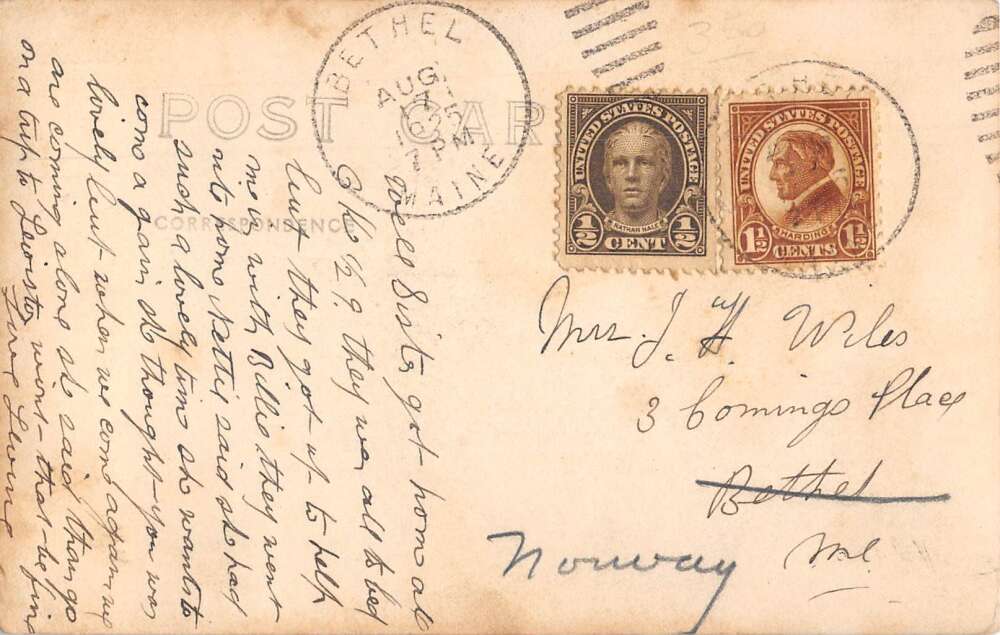 POST CARD
CORRESPONDENCE
BETHEL
AUG
1925
7 PM
MAINE
UNITED STATES POSTAGE
NATHAN HALE
1/2 CENT 1/2
UNITED STATES POSTAGE
HARDING
1 1/2 CENTS 1 1/2
Well Sister got home at
they was all to bed
but they got up to help
me us with Billie they went
nuts none Nettie said she had
such a lovely time she wants to
come again she thought you was
lovely but when we come again we
are coming alone she said them go
on a trip to Lewiston wont that be fine
Love
Mrs J. H. Wiles
3 Comings Place
Bethel
Norway Me